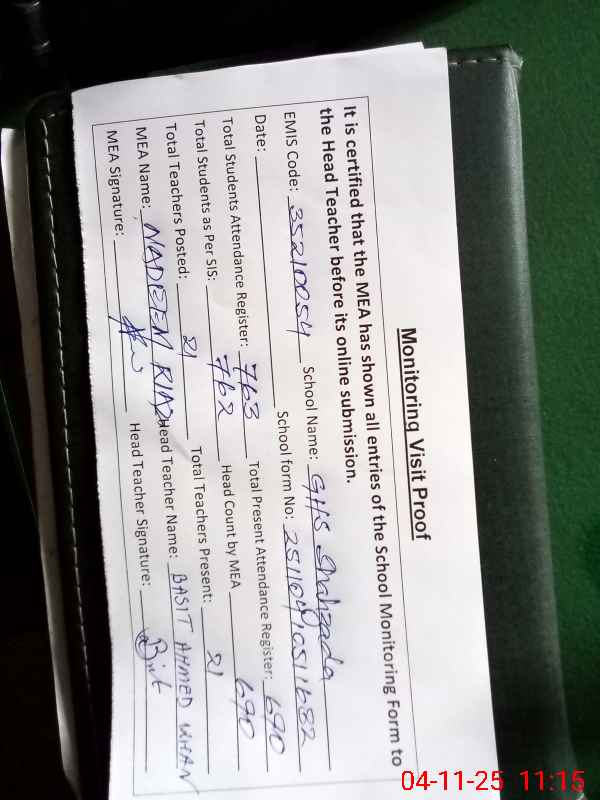 Monitoring Visit Proof
It is certified that the MEA has shown all entries of the School Monitoring Form to
the Head Teacher before its online submission.
EMIS Code: 35210054 School Name: GHS Shahzada
Date: School form No: 2511041051682
Total Students Attendance Register: 763 Total Present Attendance Register: 690
Total Students as Per SIS: 762 Head Count by MEA 690
Total Teachers Posted: 21 Total Teachers Present: 21
MEA Name: NADEEM RIAZ Head Teacher Name: BASIT AHMED KHAN
MEA Signature: Head Teacher Signature:
04-11-25 11:15